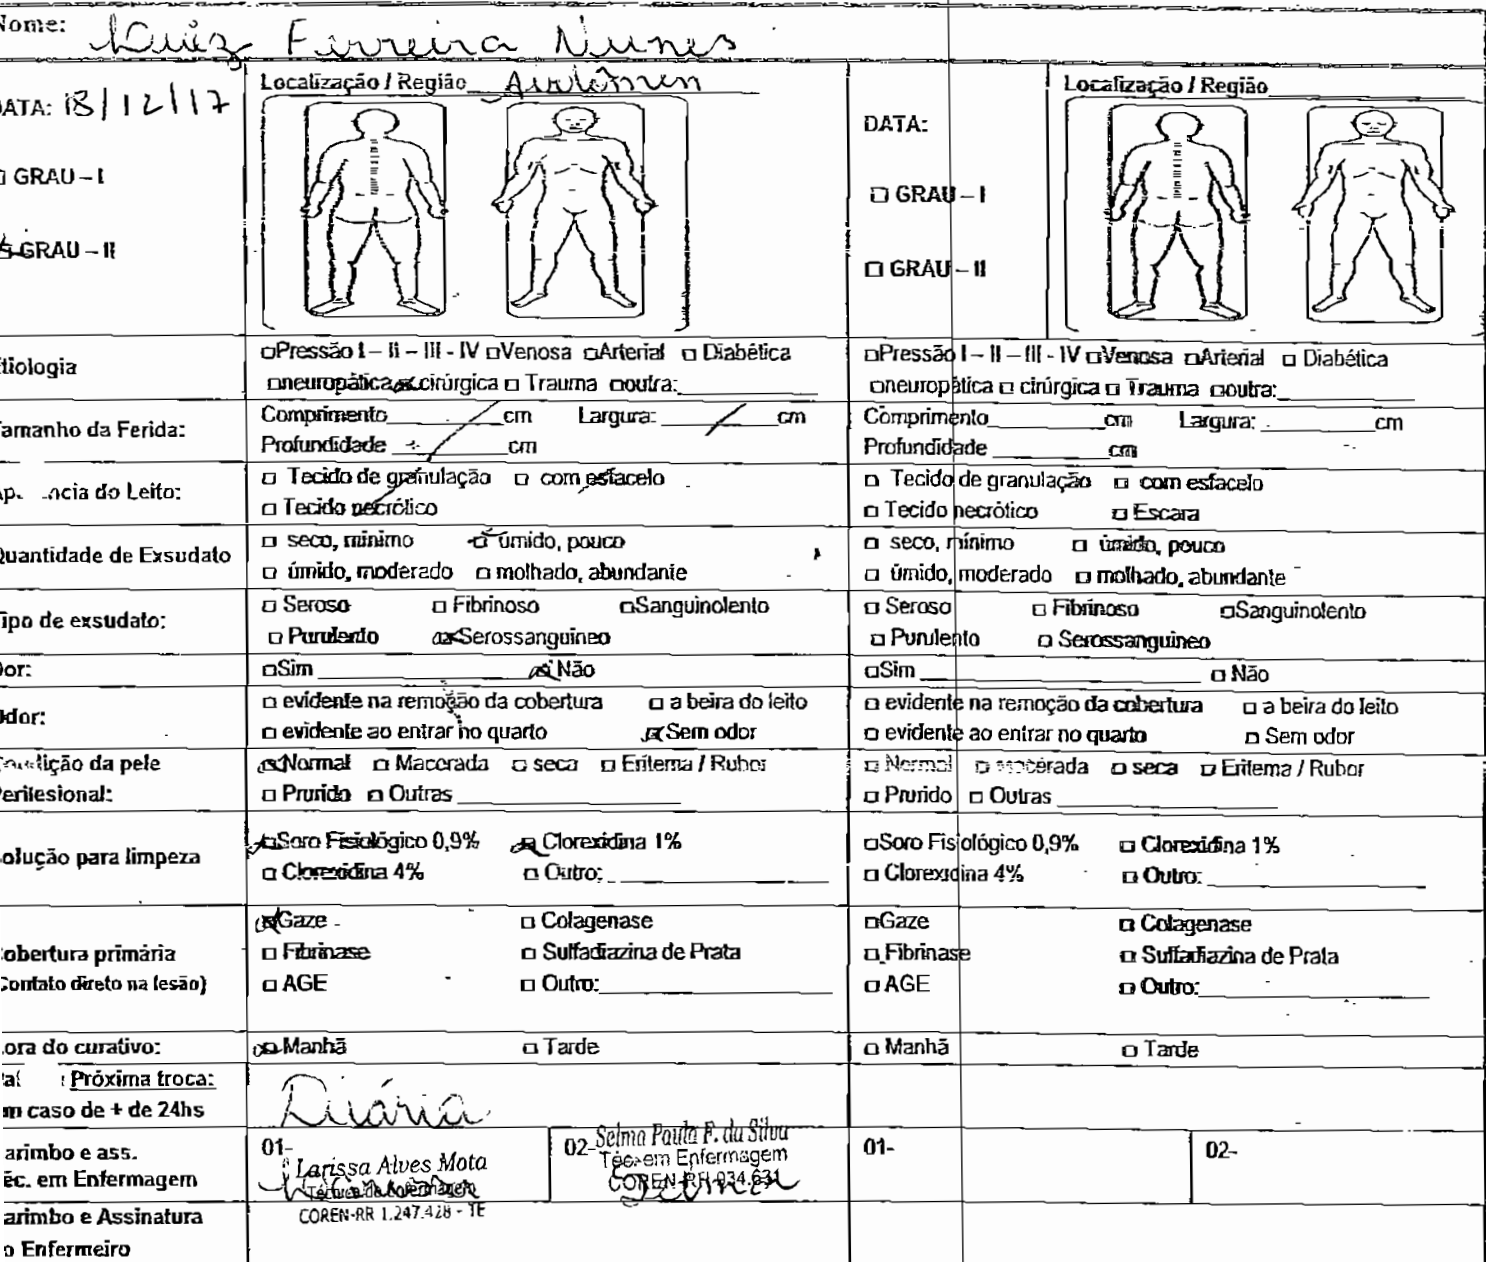 Nome: Luiz Ferreira Nunes
DATA: 18/12/17
Localização / Região Abdômen
DATA:
Localização / Região
GRAU – I
GRAU – II
GRAU – I
GRAU – II
Etiologia
□Pressão I – II – III - IV □Venosa □Arterial □ Diabética
□neuropática ☒cirúrgica □ Trauma □outra:
□Pressão I – II – III - IV □Venosa □Arterial □ Diabética
□neuropática □ cirúrgica □ Trauma □outra:
Tamanho da Ferida:
Comprimento cm Largura: cm
Profundidade cm
Comprimento cm Largura: cm
Profundidade cm
do Leito:
□ Tecido de granulação □ com esfacelo
□ Tecido necrótico
□ Tecido de granulação □ com esfacelo
□ Tecido necrótico □ Escara
Quantidade de Exsudato
□ seco, mínimo ☒ úmido, pouco
□ úmido, moderado □ molhado, abundante
□ seco, mínimo □ úmido, pouco
□ úmido, moderado □ molhado, abundante
Tipo de exsudato:
□ Seroso □ Fibrinoso □Sanguinolento
□ Purulento ☒Serossanguineo
□ Seroso □ Fibrinoso □Sanguinolento
□ Purulento □ Serossanguineo
Dor:
□Sim ☒Não
□Sim □ Não
Odor:
□ evidente na remoção da cobertura □ a beira do leito
□ evidente ao entrar no quarto ☒Sem odor
□ evidente na remoção da cobertura □ a beira do leito
□ evidente ao entrar no quarto □ Sem odor
Condição da pele
Perilesional:
☒Normal □ Macerada □ seca □ Eritema / Rubor
□ Prurido □ Outras
□ Normal □ Macerada □ seca □ Eritema / Rubor
□ Prurido □ Outras
Solução para limpeza
☒Soro Fisiológico 0,9% ☒ Clorexidina 1%
□ Clorexidina 4% □ Outro:
□Soro Fisiológico 0,9% □ Clorexidina 1%
□ Clorexidina 4% □ Outro:
Cobertura primária
(Contato direto na lesão)
☒Gaze □ Colagenase
□ Fibrinase □ Sulfadiazina de Prata
□ AGE □ Outro:
□Gaze □ Colagenase
□ Fibrinase □ Sulfadiazina de Prata
□ AGE □ Outro:
Hora do curativo:
☒ Manhã □ Tarde
□ Manhã □ Tarde
Próxima troca:
em caso de + de 24hs
Diária
Carimbo e ass.
Téc. em Enfermagem
01-
Larissa Alves Mota
Técnica de Enfermagem
COREN-RR 1.247.428 - TE
02-
Selma Paula F. da Silva
Téc. em Enfermagem
COREN-RR 934.631
Selma
01-
02-
Carimbo e Assinatura
do Enfermeiro